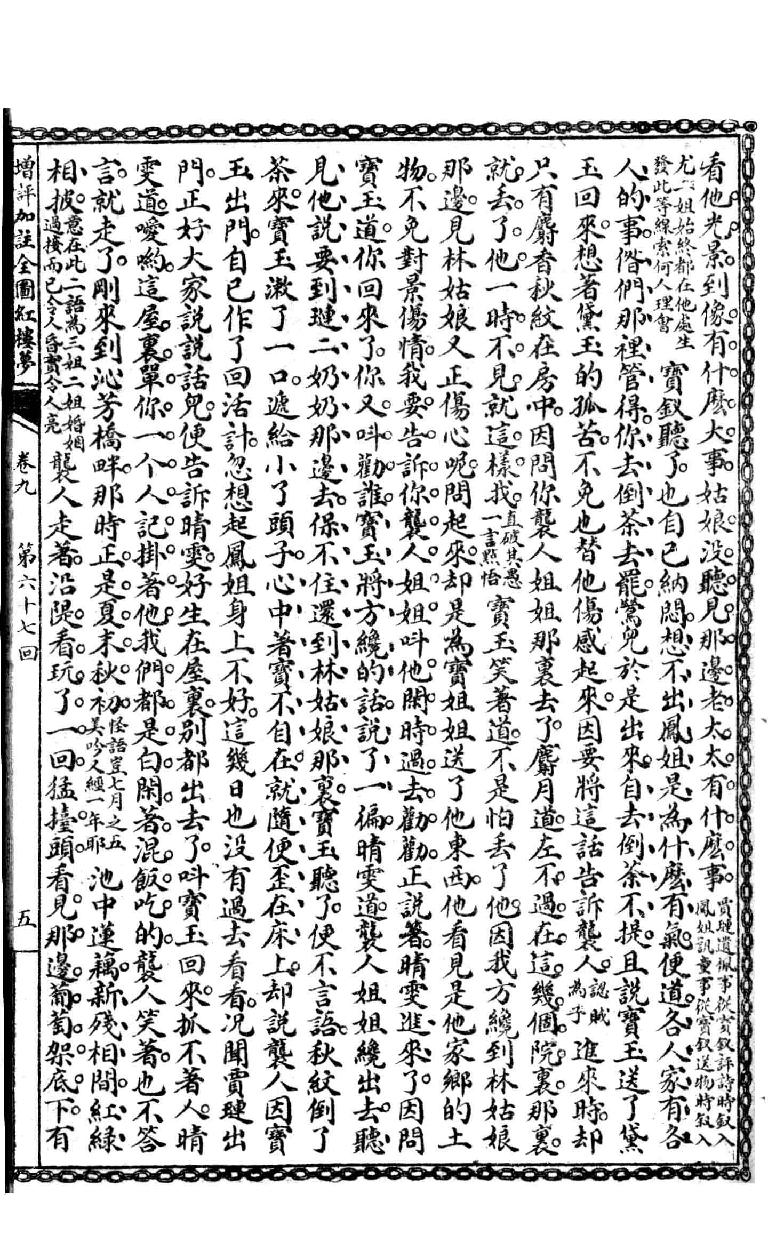 看他光景到像有什麽大事姑娘没聽見那邊老太太有什麽事賈璉遺珮事從寳釵評詩時敘入鳳姐訊童事從寳釵送物時敘入
尤二姐始終都在他處生發此等線索何人理會寳釵聽了也自己納悶想不出鳳姐是為什麽有氣便道各人家有各
人的事偺們那裡管得你去倒茶去罷鶯兒於是出來自去倒茶不提且說寳玉送了黛
玉回來想着黛玉的孤苦不免也替他傷感起來因要將這話告訴襲人認賊為子進來時却
只有麝香秋紋在房中因問你襲人姐姐那裏去了麝月道左不過在這幾個院裏那裏
就丢了他一時不見就這樣我直破其愚一言點悟寳玉笑着道不是怕丢了他因我方纔到林姑娘
那邊見林姑娘又正傷心呢問起來却是為寳姐姐送了他東西他看見是他家鄉的土
物不免對景傷情我要告訴你襲人姐姐呌他閑時過去勸勸正說着晴雯進來了因問
寳玉道你回來了你又呌勸誰寳玉將方纔的話說了一徧晴雯道襲人姐姐纔出去聽
見他說要到璉二奶奶那邊去保不住還到林姑娘那裏寳玉聽了便不言語秋紋倒了
茶來寳玉漱了一口遞給小了頭子心中着實不自在就隨便歪在床上却說襲人因寳
玉出門自己作了回活計忽想起鳳姐身上不好這幾日也没有過去看看况聞賈璉出
門正好大家說說話兒便告訴晴雯好生在屋裏别都出去了呌寳玉回來抓不着人晴
雯道噯喲這屋裏單你一个人記掛着他我們都是白閑着混飯吃的襲人笑着也不答
言就走了剛來到沁芳橋畔那時正是夏末秋初怪語豈七月之五美吟人經一年耶池中蓮藕新殘相間紅綠
相披意在此二語為三姐二姐婚姻過接而已令人昏實令人亮襲人走着沿隄看玩了一回猛擡頭看見那邊葡萄架底下有
增評加註全圖紅樓夢 卷九 第六十七回 五